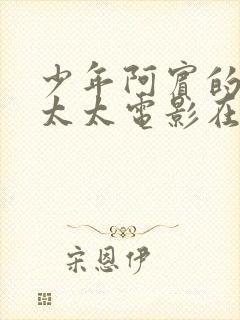 少年阿宾的
太太电影在
宋恩伊